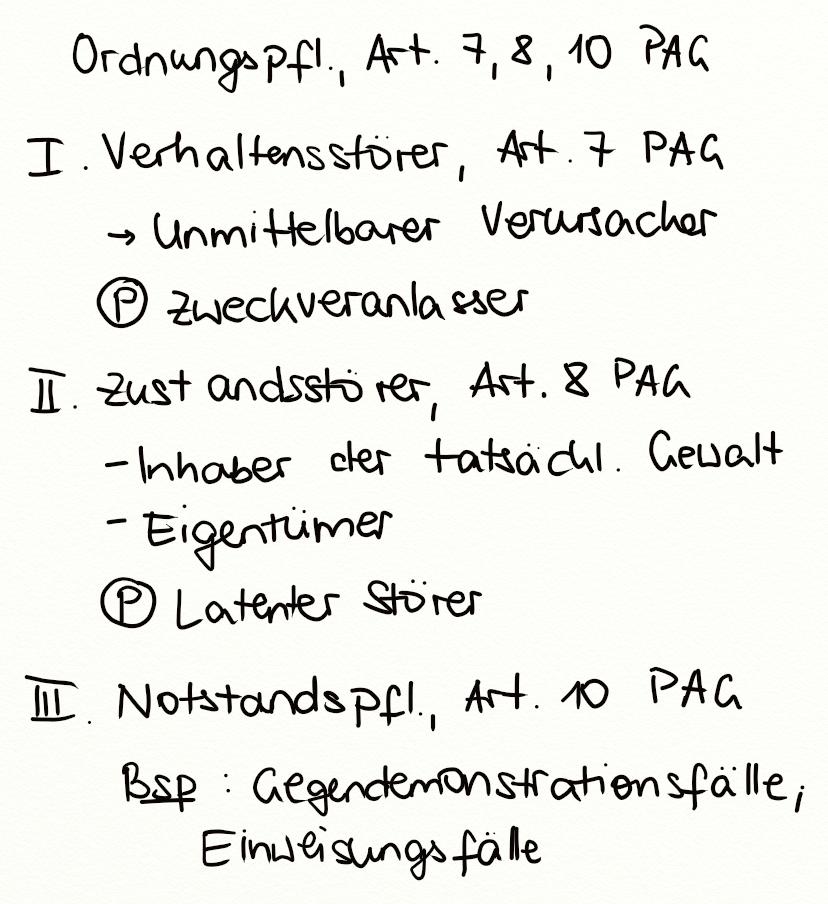 Ordnungspfl., Art. 7, 8, 10 PAG
I. Verhaltensstörer, Art. 7 PAG
→ Unmittelbarer Verursacher
Ⓟ Zweckveranlasser
II. Zustandsstörer, Art. 8 PAG
- Inhaber der tatsächl. Gewalt
- Eigentümer
Ⓟ Latenter Störer
III. Notstandspfl., Art. 10 PAG
Bsp: Gegendemonstrationsfälle,
Einweisungsfälle